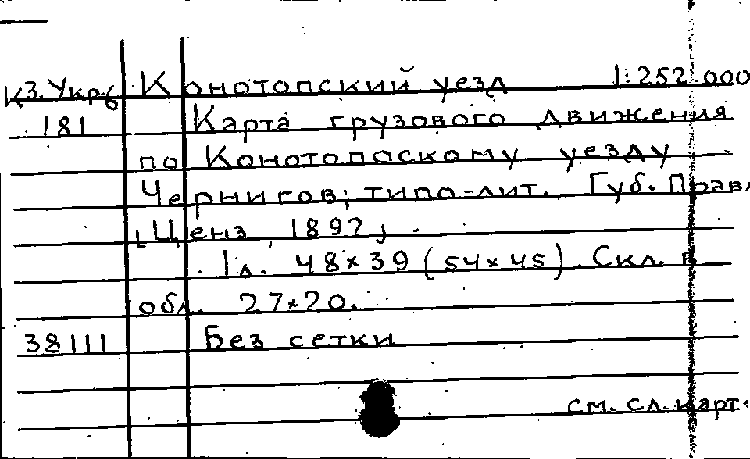 Конотопский уезд 1:252.000
К3.Укр6
181 Карта грузового движения
по Конотопскому уезду
Чернигов; типо-лит. Губ. Прав.
[Ценз. 1892]
1 л. 48×39 (54×45) Скл. в
обл. 27×20.
38111 Без сетки
см. сл. карт.